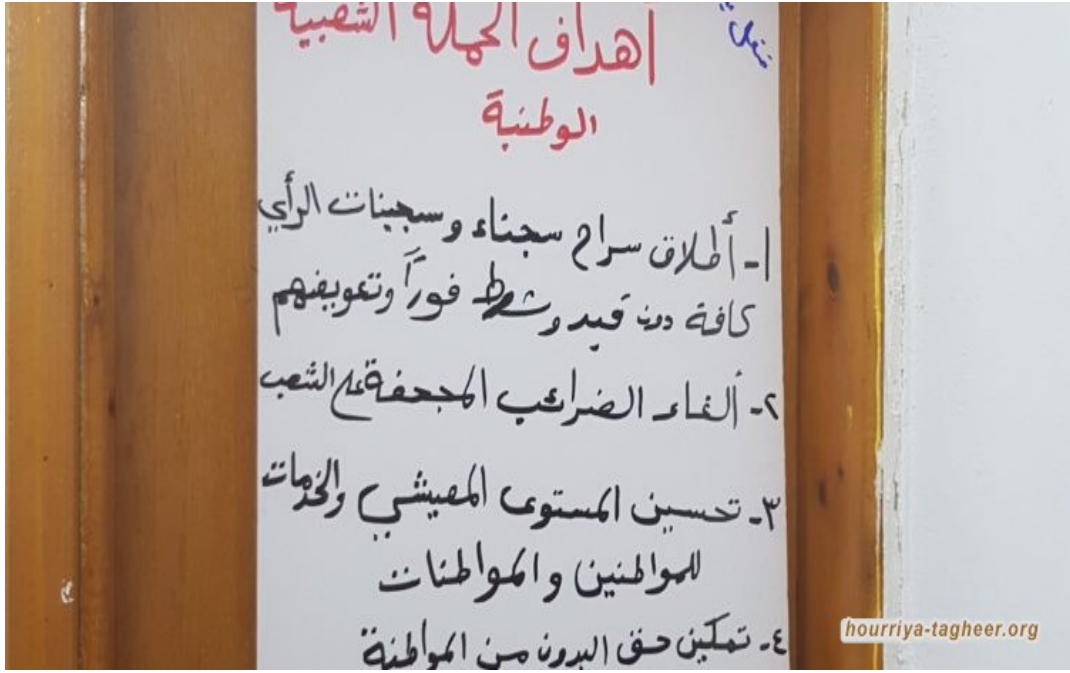 أهداف الحملة الشعبية
الوطنية
١- أطلاق سراح سجناء وسجينات الرأي
كافة دون قيد وشرط فوراً وتعويضهم
٢- ألغاء الضرائب المجحفة على الشعب
٣- تحسين المستوى المعيشي والخدمات
للمواطنين والمواطنات
٤- تمكين حق البدون من المواطنة
hourriya-tagheer.org